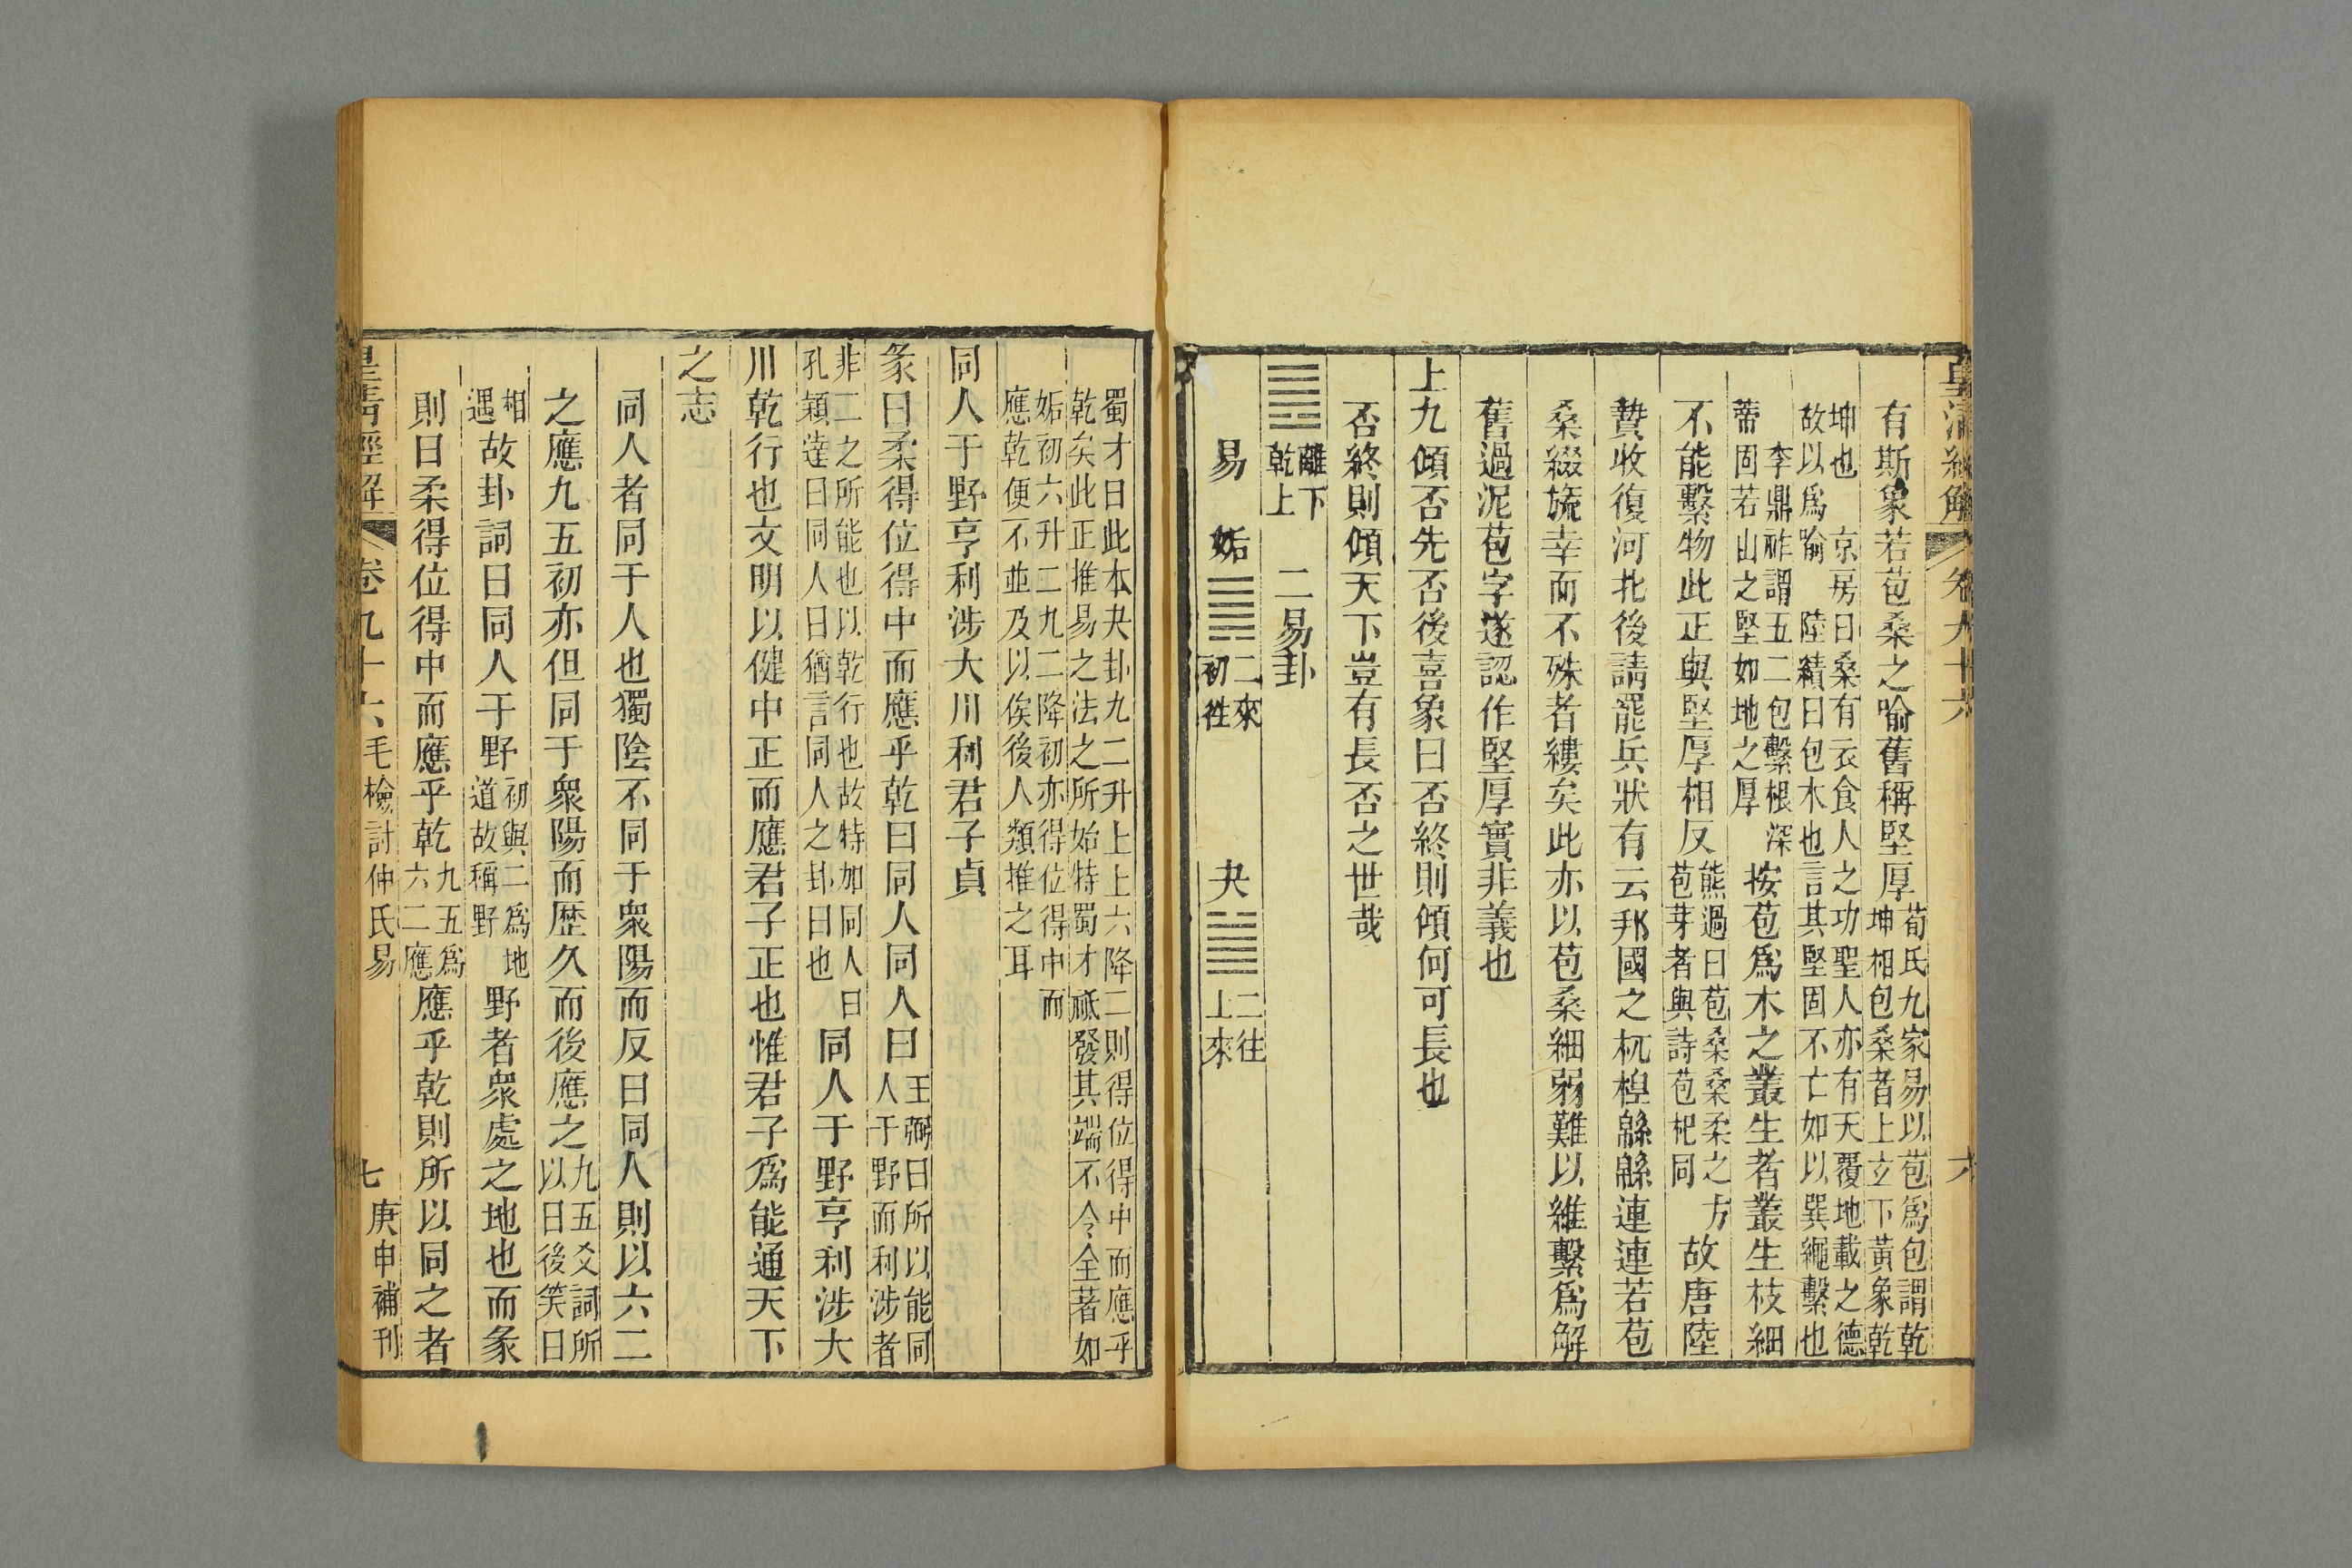 皇清經解 卷九十六 六
有斯象若苞桑之喻舊稱堅厚
荀氏九家易以苞爲包謂乾
坤相包桑者上玄下黃象乾
坤也　京房曰桑有衣食人之功聖人亦有天覆地載之德
故以爲喻　陸績曰包木也言其堅固不亡如以巽繩繫也
李鼎祚謂五二包繫根深
蒂固若山之堅如地之厚
按苞爲木之叢生者叢生枝細
不能繫物此正與堅厚相反
熊過曰苞桑桑柔之方
苞芽者與詩苞杞同
故唐陸
贄收復河北後請罷兵狀有云邦國之杌棿緜緜連連若苞
桑綴旒幸而不殊者縷矣此亦以苞桑細弱難以維繫爲解
舊過泥苞字遂認作堅厚實非義也
上九傾否先否後喜象曰否終則傾何可長也
否終則傾天下豈有長否之世哉
離下
乾上
二易卦
易　姤
二來
初徃
夬
二往
上來
蜀才曰此本夬卦九二升上上六降二則得位得中而應乎
乾矣此正推易之法之所始特蜀才祗發其端不令全著如
姤初六升二九二降初亦得位得中而
應乾便不並及以俟後人類推之耳
同人于野亨利涉大川利君子貞
彖曰柔得位得中而應乎乾曰同人同人曰
王弼曰所以能同
人于野而利涉者
非二之所能也以乾行也故特加同人曰
孔穎達曰同人曰猶言同人之卦曰也
同人于野亨利涉大
川乾行也文明以健中正而應君子正也惟君子爲能通天下
之志
同人者同于人也獨陰不同于衆陽而反曰同人則以六二
之應九五初亦但同于衆陽而歷久而後應之
九五爻詞所
以曰後笑曰
相
遇
故卦詞曰同人于野
初與二爲地
道故稱野
野者衆處之地也而彖
則曰柔得位得中而應乎乾
九五爲
六二應
應乎乾則所以同之者
皇清經解 卷九十六 毛檢討仲氏易 七 庚申補刊